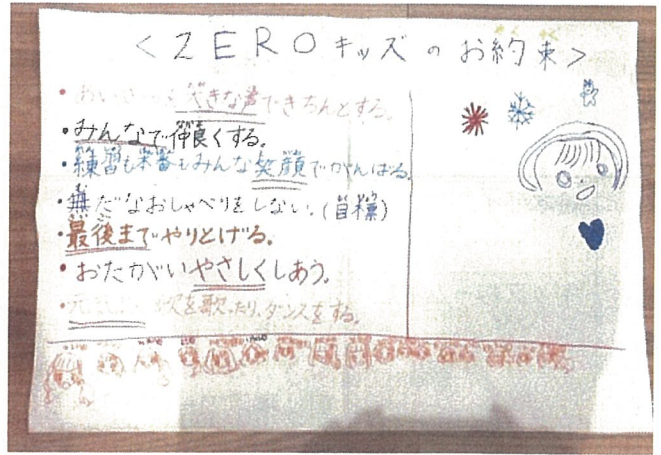 ＜ZEROキッズのお約束＞
・あいさつを大きな声できちんとする。
・みんなで仲良くする。
・練習も本番もみんな笑顔でがんばる。
・無だなおしゃべりをしない。(目標)
・最後までやりとげる。
・おたがいやさしくしあう。
・歌を歌ったり、ダンスをする。